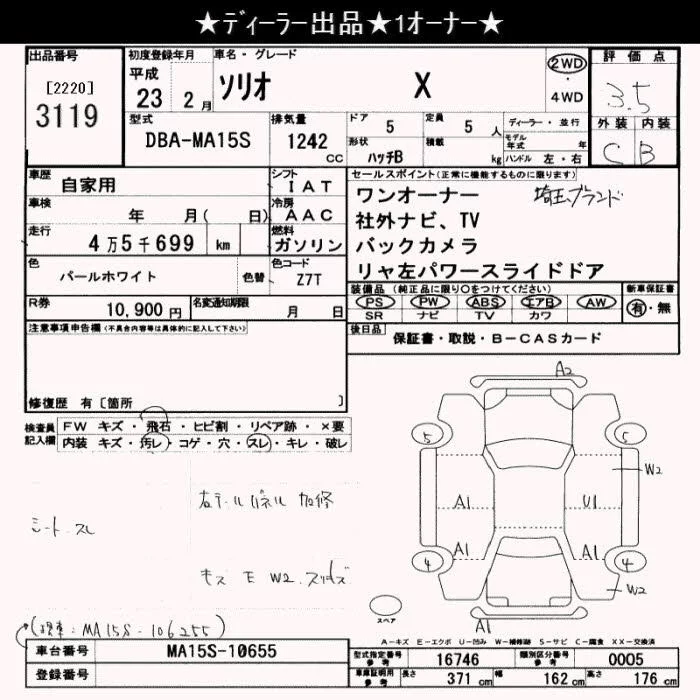 ★ディーラー出品★1オーナー★
出品番号
[2220]
3119
初度登録年月
平成
23 2月
車名・グレード
ソリオ X
2WD
・
4WD
評価点
3.5
外装 内装
C B
型式
DBA-MA15S
排気量
1242
CC
ドア
5
定員
5人
形状
ハッチB
積載
kg
ディーラー・並行
モデル年式 年
ハンドル 左・右
車歴
自家用
シフト
IAT
車検
年 月( 日)
冷房
AAC
走行
4万5千699 km
燃料
ガソリン
色
パールホワイト
色替
色コード
Z7T
R券
10,900円
名変通知期限
月 日
セールスポイント(正常に機能するものに限ります)
ワンオーナー
埼玉ブランド
社外ナビ、TV
バックカメラ
リヤ左パワースライドドア
装備品 (純正品に限り○をつけてください)
PS PW ABS エアB AW
SR ナビ TV カワ
新車保証書
有・無
後日品
保証書・取説・B-CASカード
注意事項申告欄(不具合内容等は具体的に記入して下さい)
修復歴 有〔箇所 〕
検査員記入欄
FW キズ・飛石・ヒビ割・リペア跡・×要
内装 キズ・汚レ・コゲ・穴・スレ・キレ・破レ
シート スレ
右テールパネル 加修
キズ E W2
(現車:MA15S-106255)
A2
5
5
W2
A1
U1
A1
A1
4
4
W2
スペア
A1
A-キズ E-エクボ U-凹み W-補修跡 S-サビ C-腐食 XX-交換済
車台番号
MA15S-10655
登録番号
型式指定番号
参考
16746
類別区分番号
参考
0005
車庫証明用
参考
長さ
371 cm
幅
162 cm
高さ
176 cm